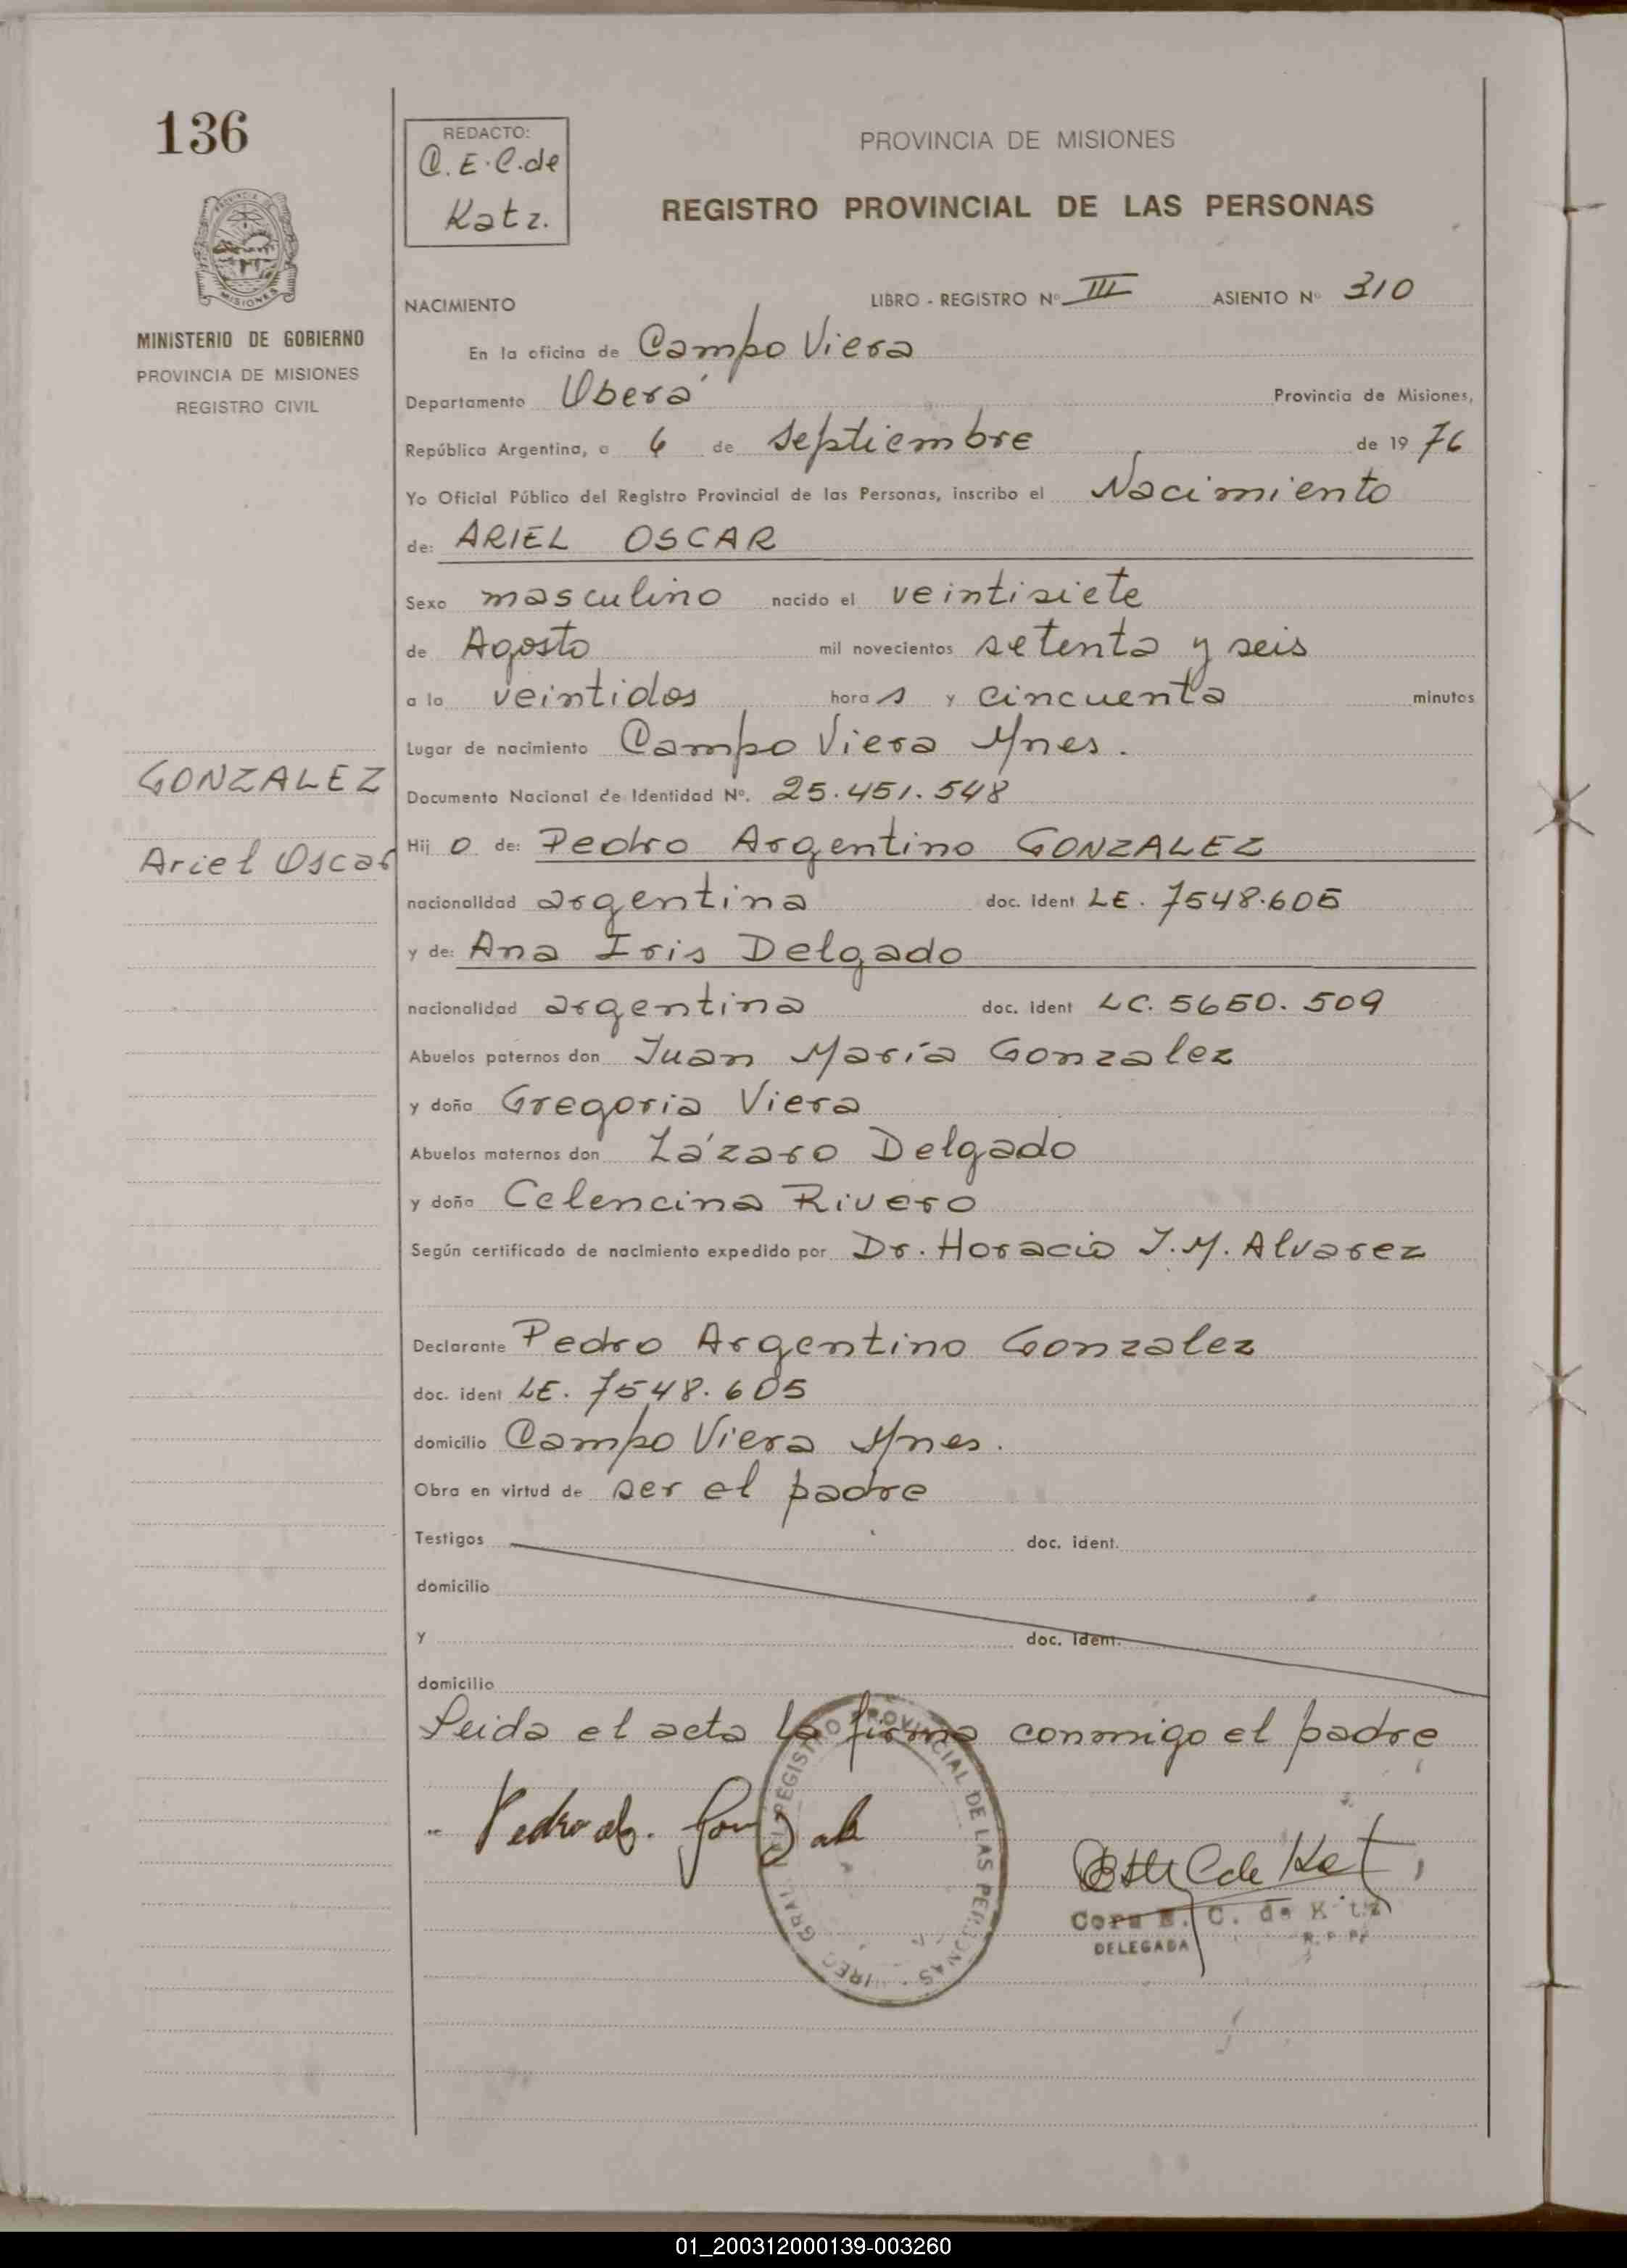 136
REDACTO:
C. E. C. de
Katz.
PROVINCIA DE MISIONES
REGISTRO PROVINCIAL DE LAS PERSONAS
MISIONES
MINISTERIO DE GOBIERNO
PROVINCIA DE MISIONES
REGISTRO CIVIL
NACIMIENTO LIBRO - REGISTRO Nº III ASIENTO Nº 310
En la oficina de Campo Viera
Departamento Oberá Provincia de Misiones,
República Argentina, a 6 de Septiembre de 19 76
Yo Oficial Público del Registro Provincial de las Personas, inscribo el Nacimiento
de: ARIEL OSCAR
Sexo masculino nacido el veintisiete
de Agosto mil novecientos setenta y seis
a la veintidos hora s y cincuenta minutos
Lugar de nacimiento Campo Viera Mnes.
GONZALEZ
Documento Nacional de Identidad Nº. 25.451.548
Ariel Oscar
Hij o de: Pedro Argentino GONZALEZ
nacionalidad argentina doc. Ident LE. 7548.605
y de: Ana Iris Delgado
nacionalidad argentina doc. ident LC. 5650.509
Abuelos paternos don Juan María Gonzalez
y doña Gregoria Viera
Abuelos maternos don Lázaro Delgado
y doña Celencina Rivero
Según certificado de nacimiento expedido por Dr. Horacio J. M. Alvarez
Declarante Pedro Argentino Gonzalez
doc. ident LE. 7548.605
domicilio Campo Viera Mnes.
Obra en virtud de ser el padre
Testigos doc. ident.
domicilio
y doc. ident.
domicilio
Leida el acta la firma conmigo el padre
REGISTRO PROVINCIAL DE LAS PERSONAS
Pedro A. Gonzalez
Cora E. C. de Katz
DELEGADA R. P. P.
01_200312000139-003260